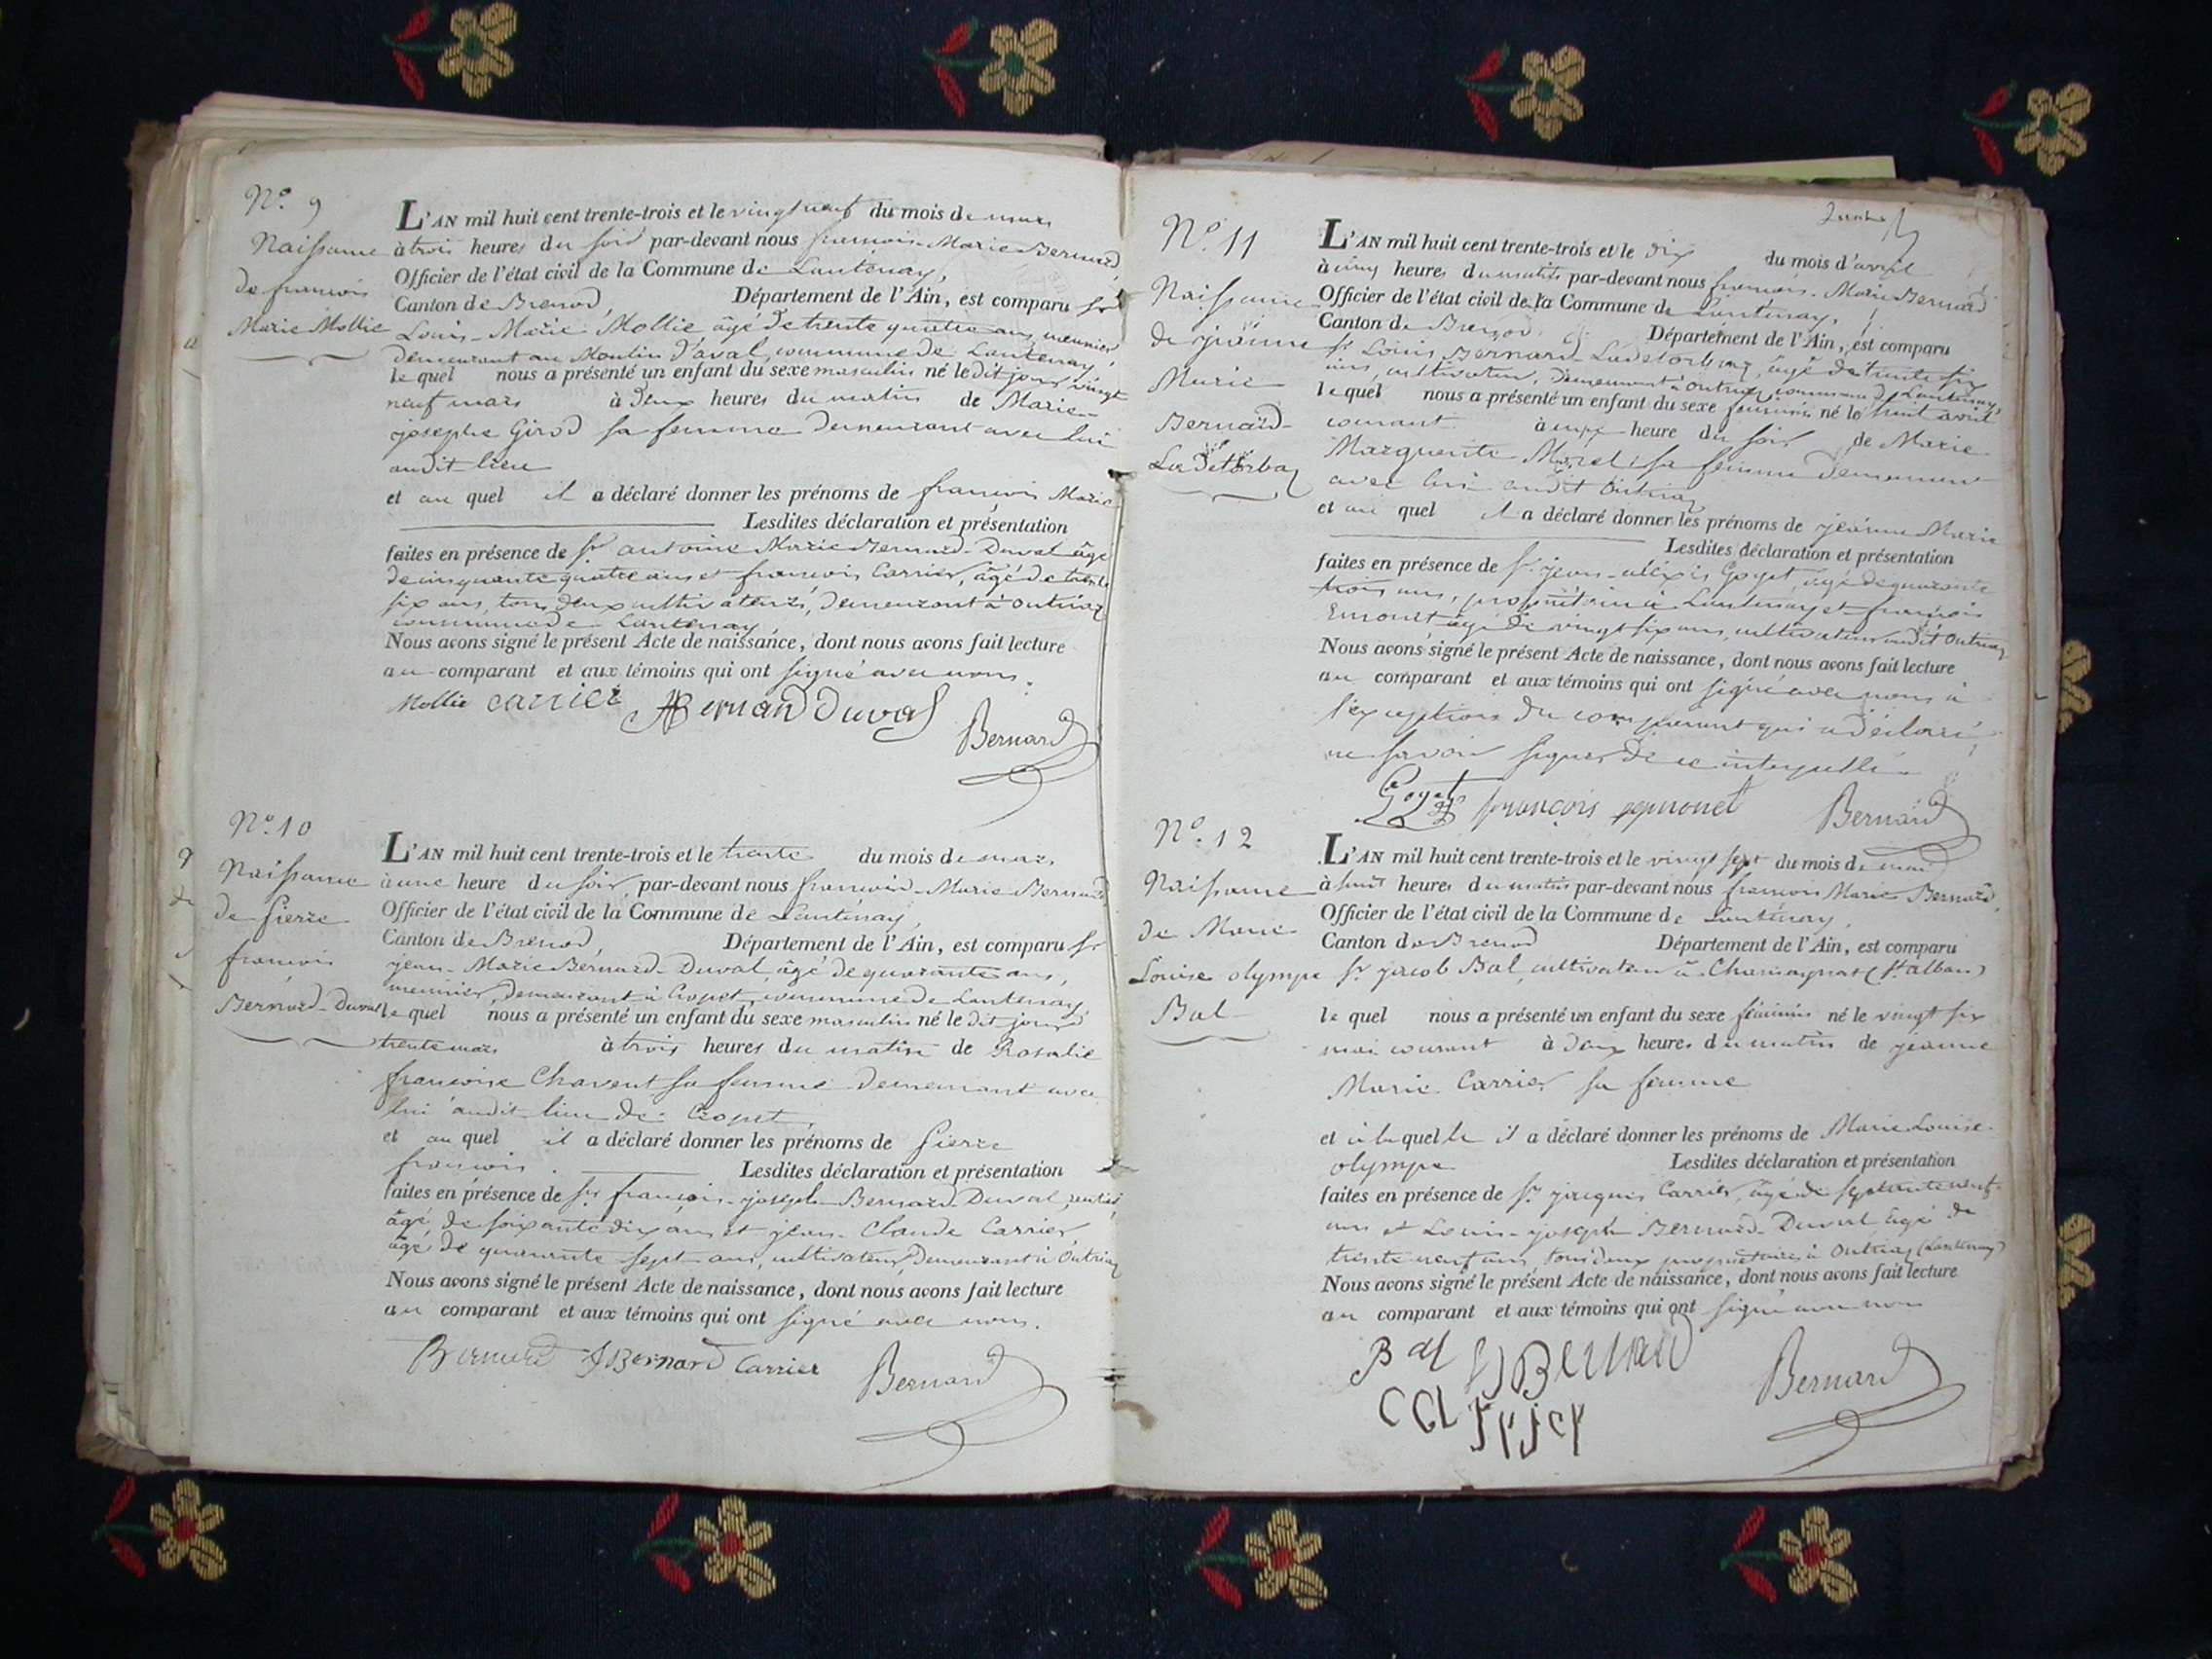 N.° 9
Naissance
de françois
Marie Mollie
L'AN mil huit cent trente-trois et le vingt neuf du mois de mars
à trois heures du soir par-devant nous françois-Marie Bernard
Officier de l'état civil de la Commune de Lantenay,
Canton de Brenod, Département de l'Ain, est comparu Sr
Louis-Marie Mollie âgé de trente quatre ans, meunier
demeurant au Moulin d'aval, commune de Lantenay,
le quel nous a présenté un enfant du sexe masculin né le dit jour vingt
neuf mars à deux heures du matin de Marie-
josephe Girod sa femme demeurant avec lui
audit lieu
et au quel il a déclaré donner les prénoms de françois Marie
Lesdites déclaration et présentation
faites en présence de Sr antoine Marie Bernard-Duval âgé
de cinquante quatre ans et françois Carrier, âgé de trente
six ans, tous deux cultivateurs, demeurant à outriaz
commune de Lantenay
Nous avons signé le présent Acte de naissance, dont nous avons fait lecture
au comparant et aux témoins qui ont signé avec nous.
Mollie carrier ABernard Duval
Bernard
N.° 10
Naissance
de Pierre
françois
Bernard-Duval
L'AN mil huit cent trente-trois et le trente du mois de mars
à une heure du soir par-devant nous françois-Marie Bernard
Officier de l'état civil de la Commune de Lantenay,
Canton de Brenod, Département de l'Ain, est comparu Sr
jean-Marie Bernard-Duval, âgé de quarante ans,
meunier, demeurant à Cropet, commune de Lantenay
le quel nous a présenté un enfant du sexe masculin né le dit jour
trente mars à trois heures du matin de Rosalie
françoise Chavent sa femme demeurant avec
lui audit lieu de Cropet,
et au quel il a déclaré donner les prénoms de Pierre
françois. Lesdites déclaration et présentation
faites en présence de Srs françois-joseph Bernard-Duval, rentier,
âgé de soixante dix ans et jean-Claude Carrier,
âgé de quarante sept ans, cultivateur, demeurant à Outriaz
Nous avons signé le présent Acte de naissance, dont nous avons fait lecture
au comparant et aux témoins qui ont signé avec nous.
Bernard fBernard Carrier
Bernard
N.° 11
Naissance
de jeanne
Marie
Bernard-
Ladetorbaz
L'AN mil huit cent trente-trois et le dix du mois d'avril
à cinq heures du matin par-devant nous françois-Marie Bernard
Officier de l'état civil de la Commune de Lantenay,
Canton de Brenod Département de l'Ain, est comparu
Sr Louis Bernard-Ladetorbaz, âgé de trente six
ans, cultivateur, demeurant à outriaz, commune de Lantenay,
le quel nous a présenté un enfant du sexe féminin né le huit avril
courant à onze heure du soir de Marie
Marguerite Morel sa femme demeurant
avec lui audit Outriaz
et au quel il a déclaré donner les prénoms de jeanne Marie
Lesdites déclaration et présentation
faites en présence de Sr jean-aléxis Goyet, âgé de quarante
trois ans, propriétaire à Lantenay et françois
Emonet, âgé de vingt six ans, cultivateur audit Outriaz
Nous avons signé le présent Acte de naissance, dont nous avons fait lecture
au comparant et aux témoins qui ont signé avec nous à
l'exception du comparant qui a déclaré
ne savoir signer de ce interpellé.
Goyet françois emonet Bernard
N.° 12
Naissance
de Marie
Louise olympe
Bal
L'AN mil huit cent trente-trois et le vingt sept du mois de mai
à huit heures du matin par-devant nous françois Marie Bernard,
Officier de l'état civil de la Commune de Lantenay,
Canton de Brenod Département de l'Ain, est comparu
Sr jacob Bal, cultivateur à Charmagnat (St alban)
le quel nous a présenté un enfant du sexe féminin né le vingt six
mai courant à deux heures du matin de jeanne
Marie Carrier sa femme
et à la quelle il a déclaré donner les prénoms de Marie Louise
olympe Lesdites déclaration et présentation
faites en présence de Sr jacques Carrier, âgé de septante neuf
ans et Louis-joseph Bernard-Duval âgé de
trente neuf ans, tous deux propriétaires à Outriaz (Lantenay)
Nous avons signé le présent Acte de naissance, dont nous avons fait lecture
au comparant et aux témoins qui ont signé avec nous
Bal LJBernard
Bernard